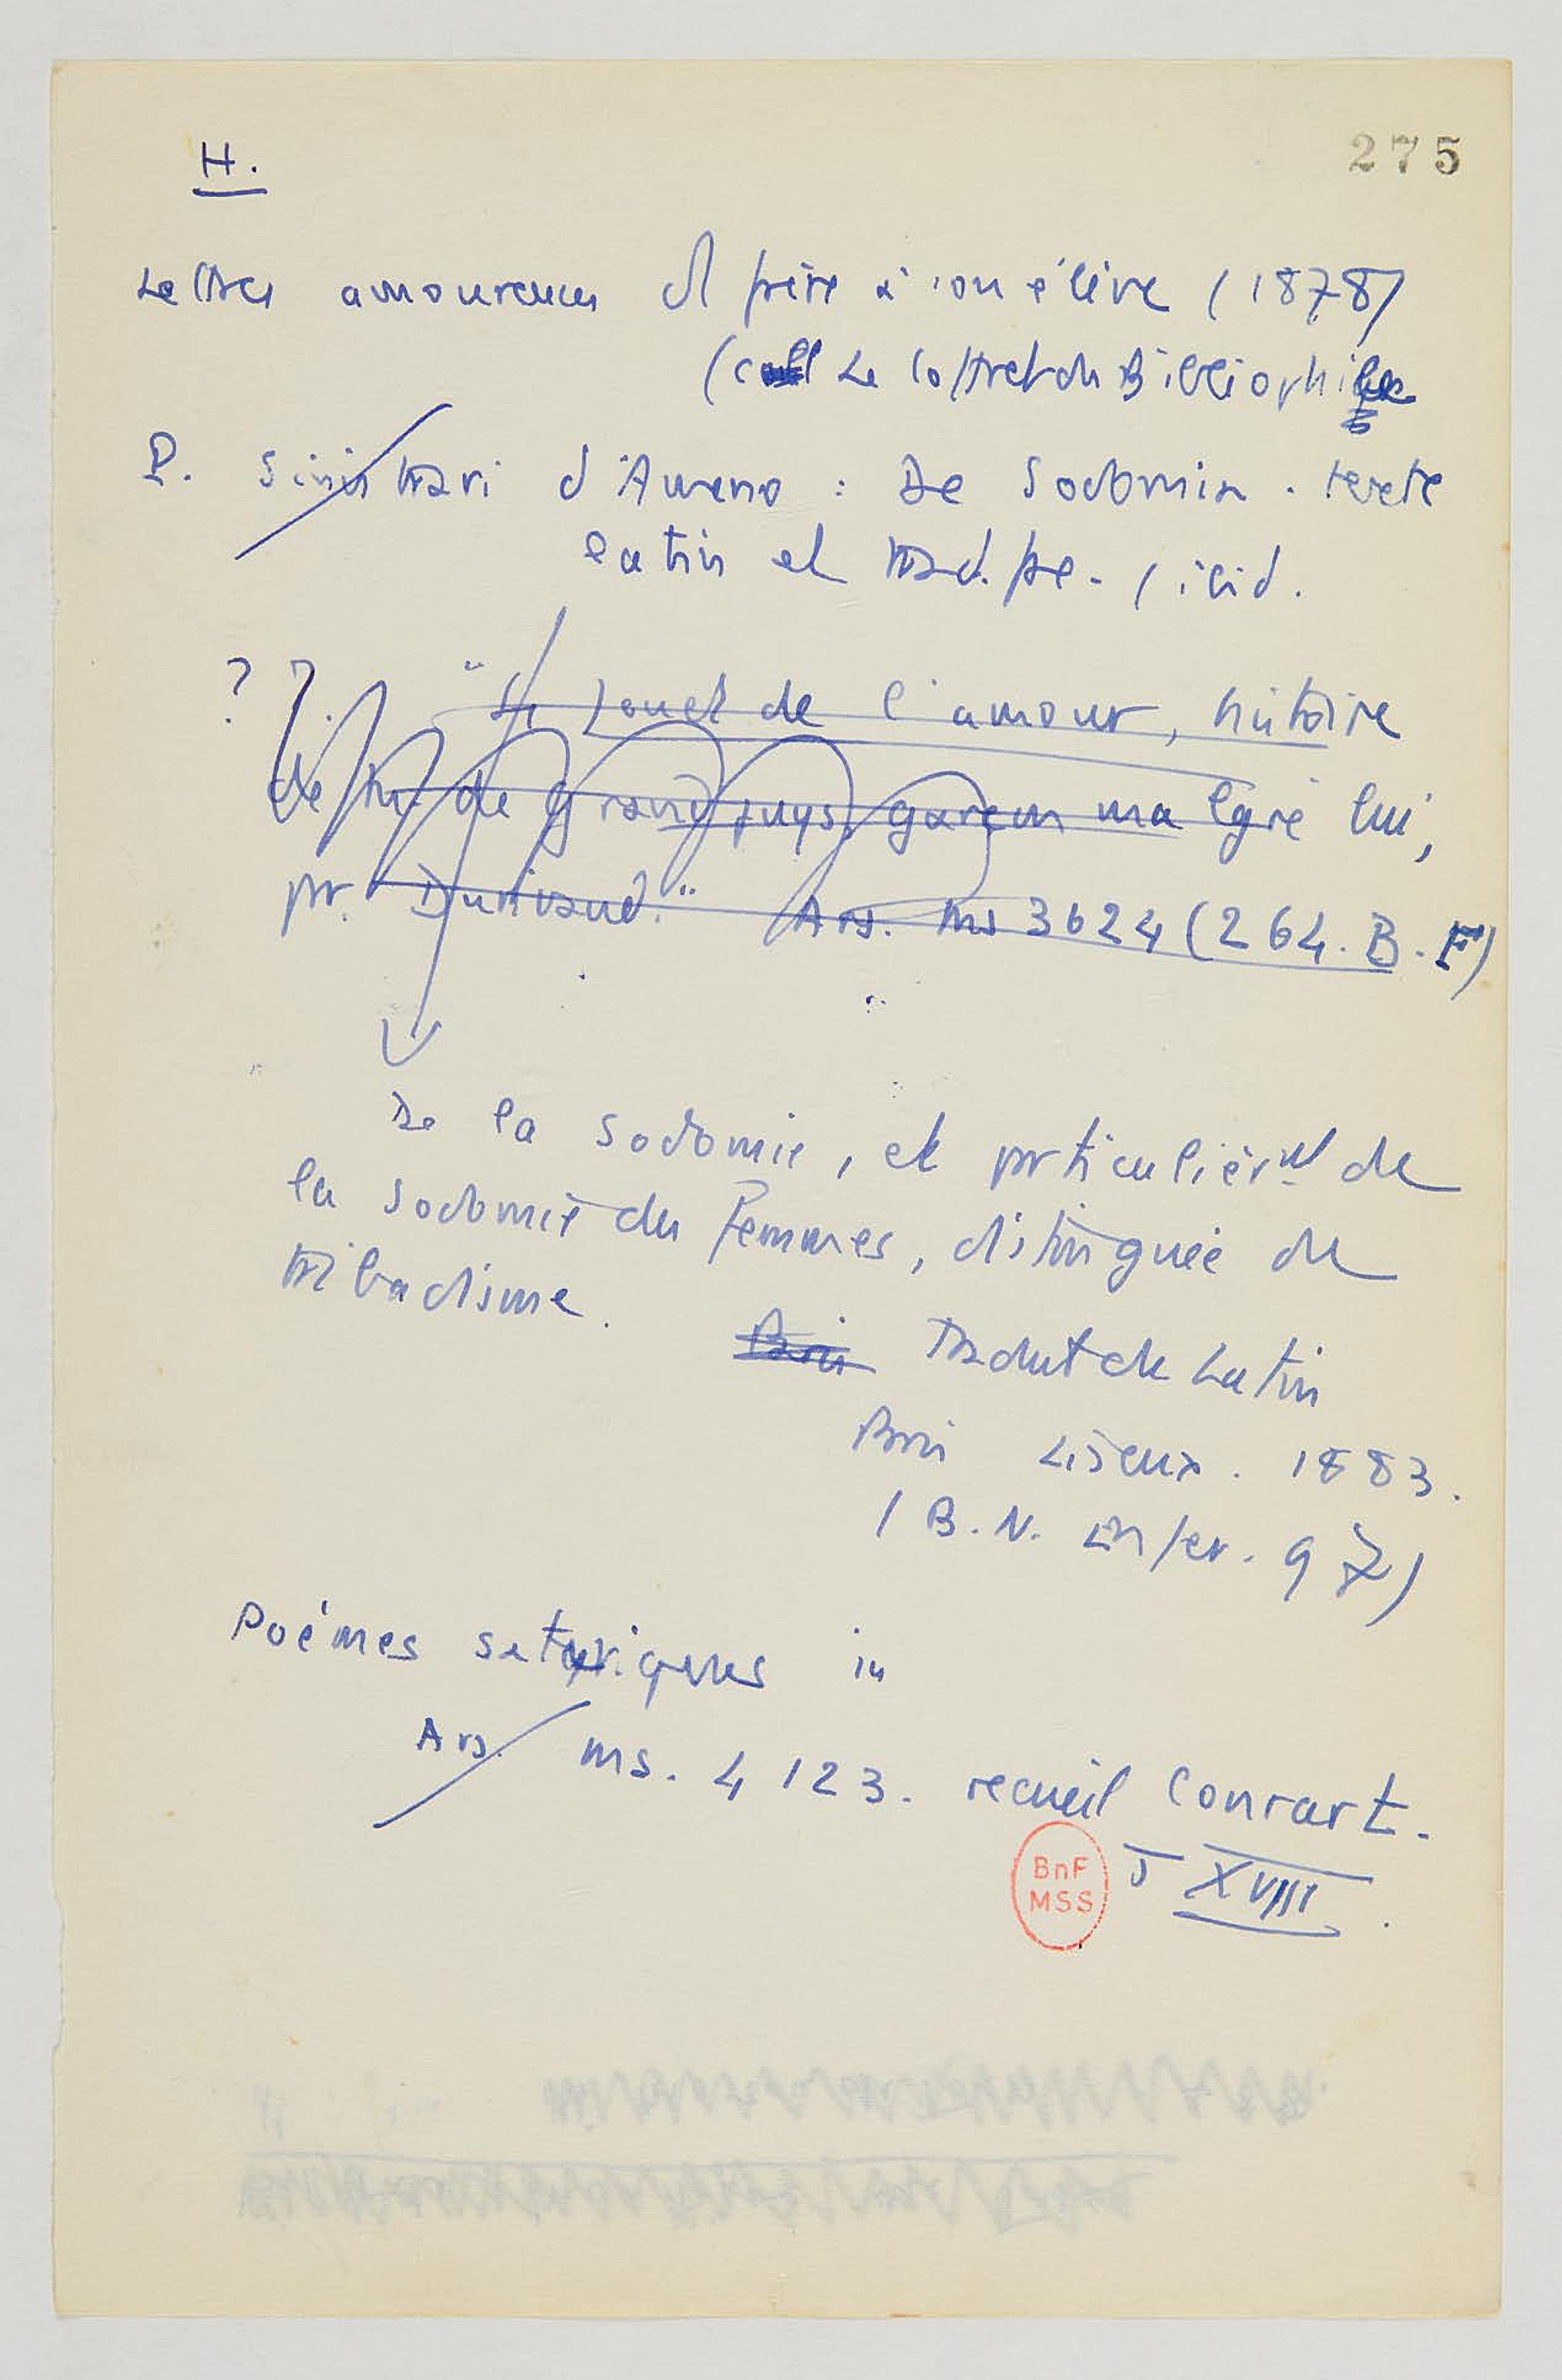 H.
275
Lettres amoureuses d'1 frère à son élève (1878)
(coll Le Coffret du Bibliophile
P. Sinistrari d'Ameno : De Sodomia. texte
latin et trad. fse. (ibid.
? ? "Le Jouet de l'amour, histoire
de Mr de Grandpuys, garçon malgré lui,
pr. Ars. ms 3624 (264. B. F)
De la sodomie, et prticulièrmt de
la sodomie des femmes, distinguée du
tribadisme.
Paris Traduit du Latin
Paris Liseux. 1883.
(B.N. Enfer. 97)
Poèmes satyriques in
Ars. ms. 4123. recueil Conrart.
T XVIII.
BnF
MSS